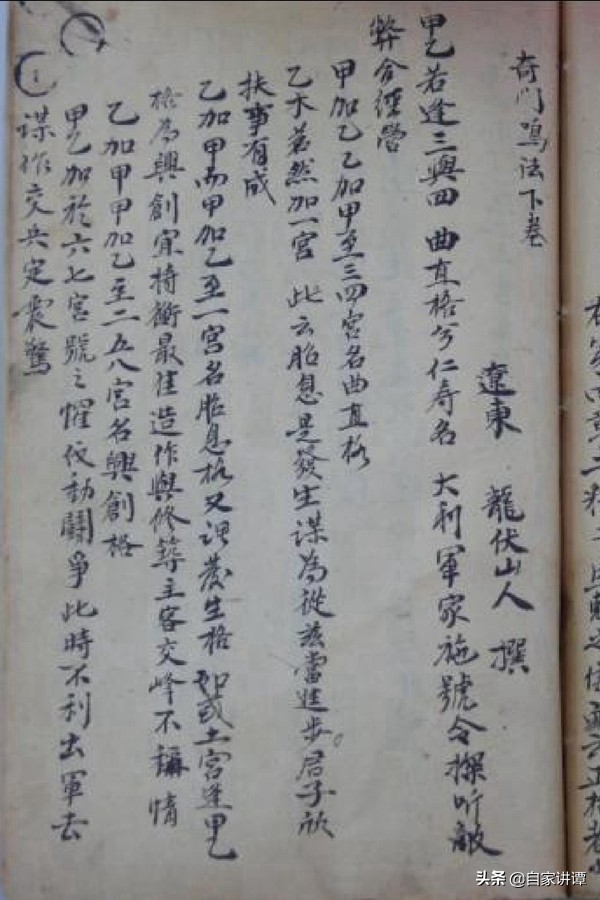 奇门鸣法下卷
遼東 龍伏山人 撰
甲乙若逢三與四 曲直格兮仁寿名 大利軍家施號令探听敵
弊合經營
甲加乙乙加甲至三四宮名曲直格
乙木若然加一宮 此云胎息是發生謀為從茲當進步。君子欣
扶事有成
乙加甲而甲加乙至一宮名胎息格又謂發生格 如或土宮逢甲乙
格為興創宜持衡最佳造作與修築主客交峰不稱情
乙加甲甲加乙至二五八宮名興創格
甲乙加於六七宮號之懼伐動鬪爭此時不利出軍去
謀作交兵定震驚
头条 @自家讲谭